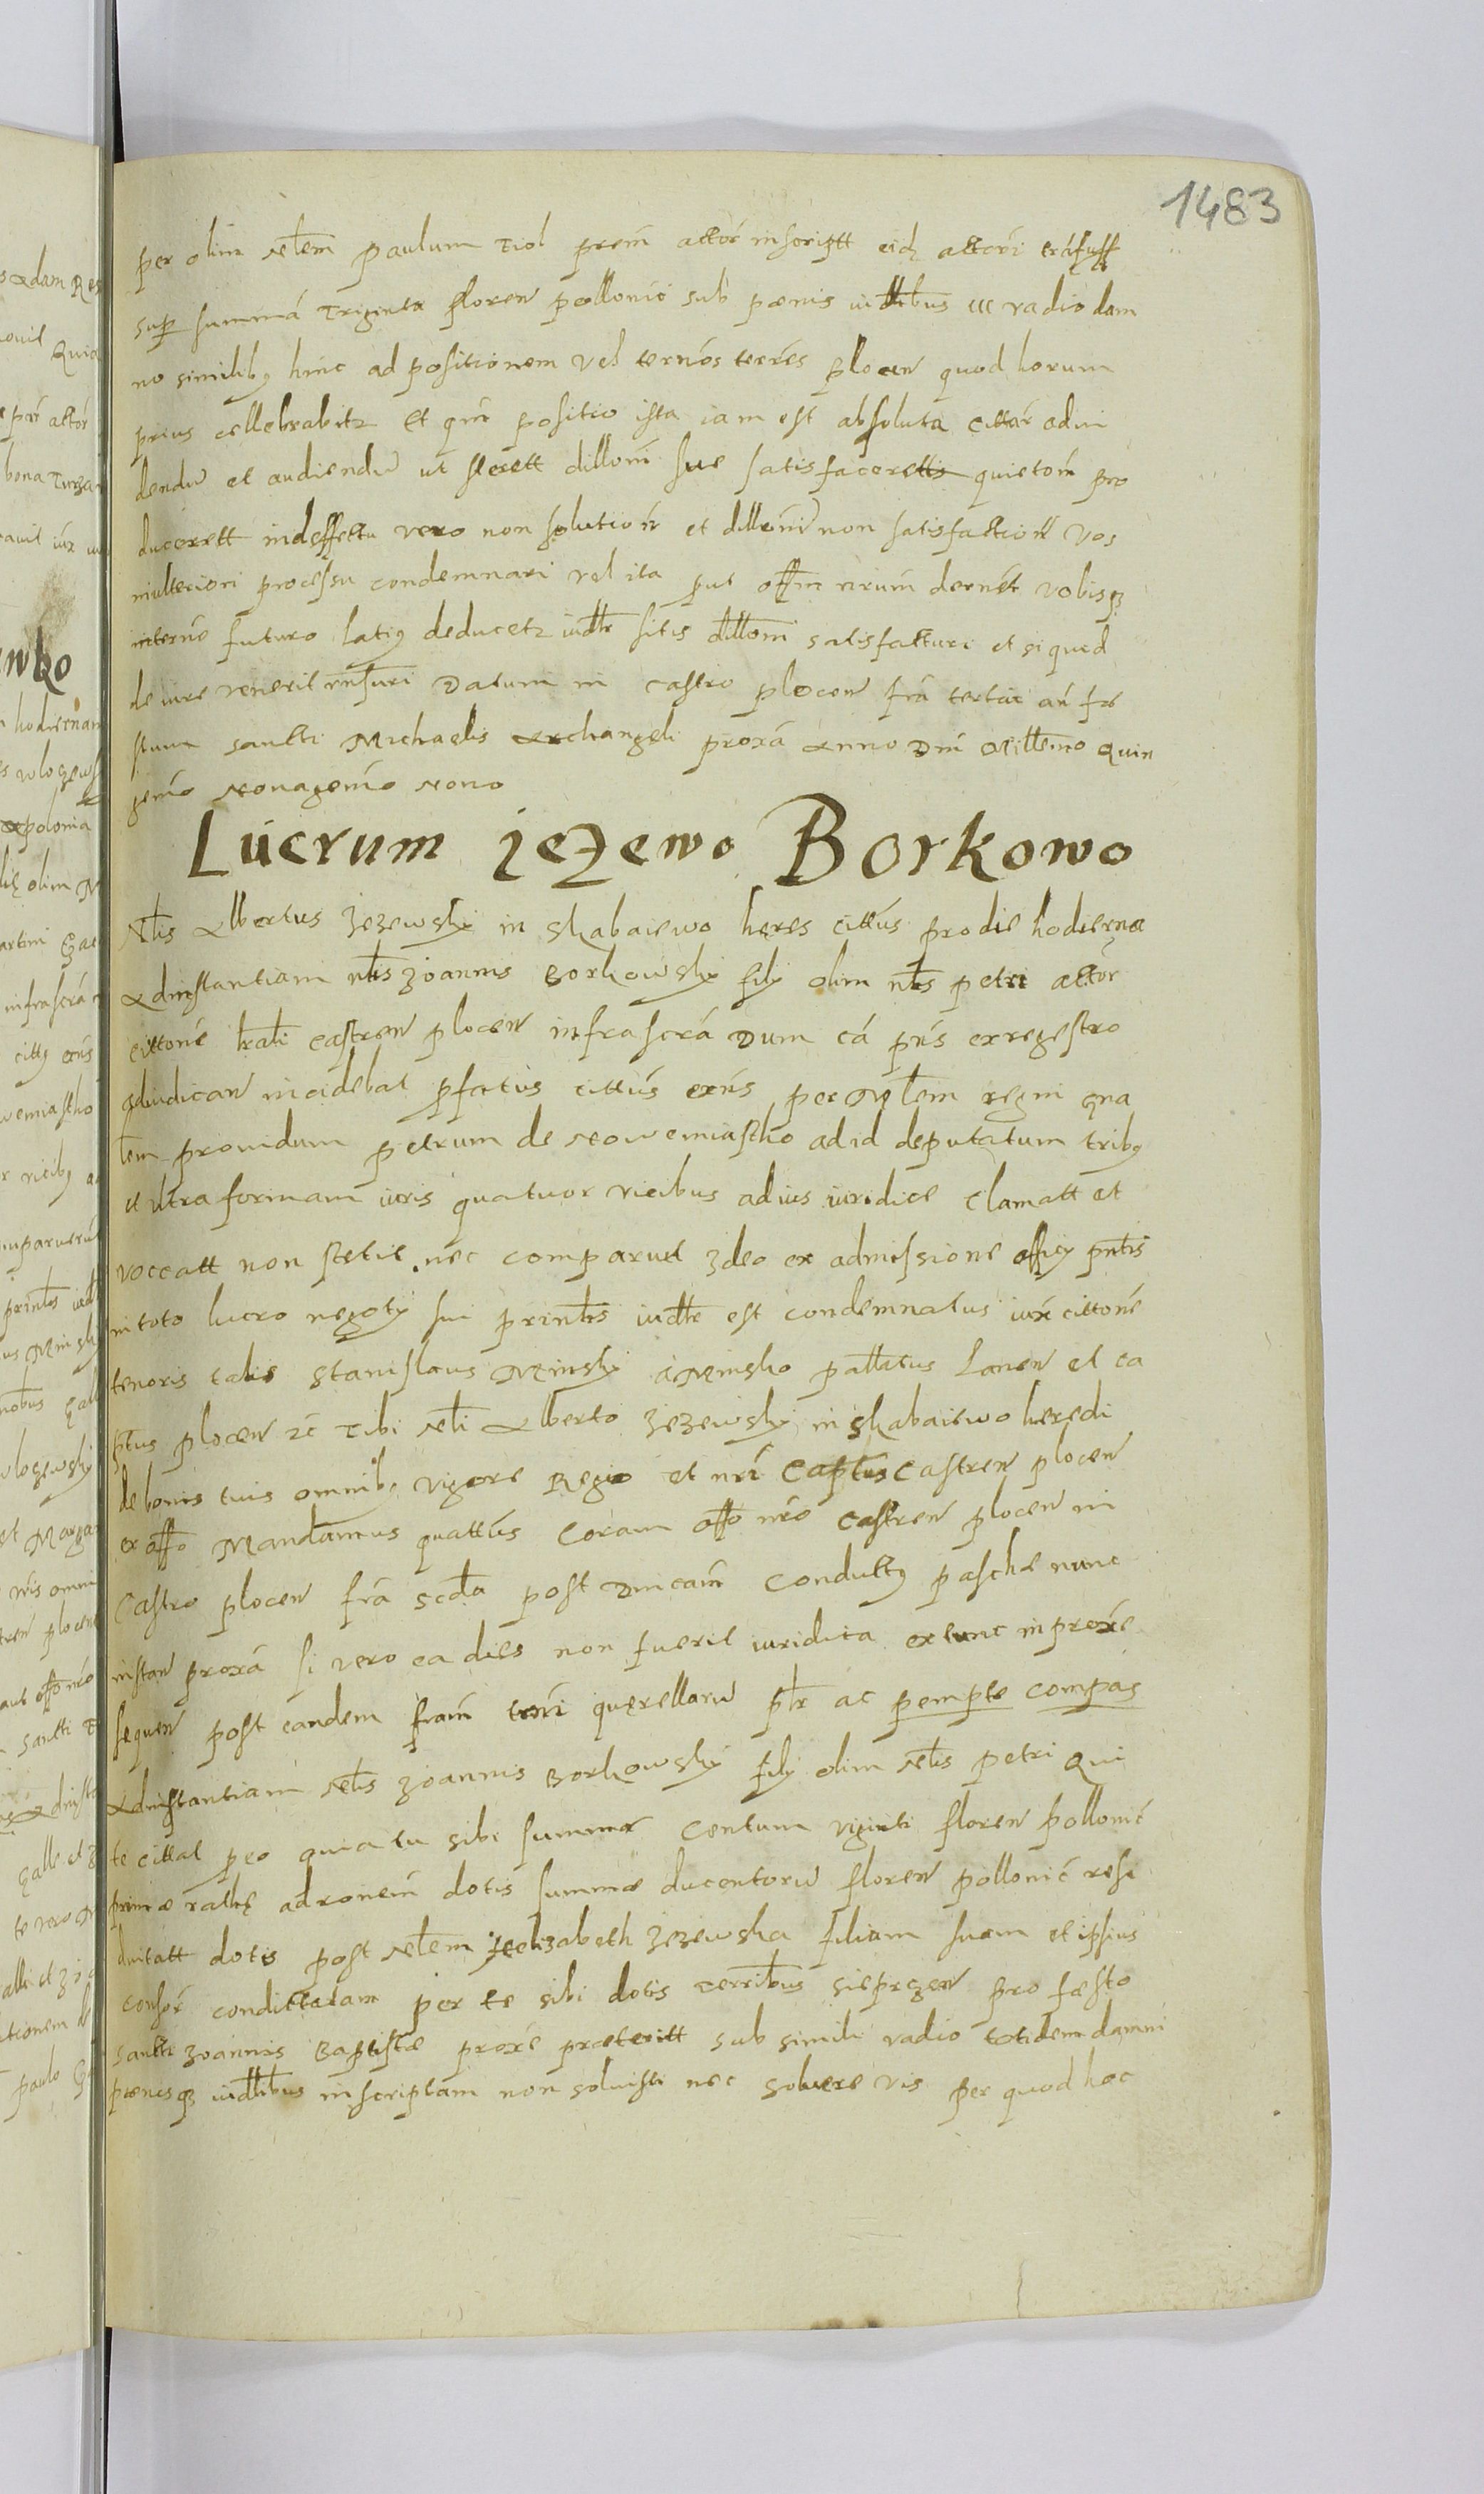 1483
per olim Nlem paulum Tiol prem attor inscriptt eidz attori trāsfuss
sup summā Triginta floren pollonic sub pœnis iudlibus ιιι vadio dam
no similibz hinc ad positionem vel ternos terrēs plocen quod horum
prius cellebrabitz Et qm positio ista iam est absoluta cittat advi
dendū et audiendū ut flerett dilloni sue satisfacerettis quietom pro
ducerett indeffettu vero non solution et dilloni non satisfaction vos
in ulteriori processu condemnari vel ita put offm nrum dernet vobisqz
in terne futuro latiz deducetz iudlr sitis dilloni satisfatturi et si quid
de iure venerit rnsuri Datum in castro plocen fra tertia an fe
stum santti Michaelis archangeli proxa Anno Dni Millemo Quin
gemo Nonagemo Nono
Lucrum jezewo Borkowo
Nlis Albertus Zezewsky in Skabaiewo heres cittus pro die hodierna
Ad instantiam nlis Joannis Borkowsky filij olim nlis petri attor
cittone lrali castren plocen infrascra Dum ca pns ex regestro
adiudican incidebat pfatus cittus exns per Mlem regni gna
lem providum petrum de Nowemiastho ad id deputatum tribz
et ultra formam iuris quatuor vicibus ad ius iuridice clamatt et
voccatt non stetit nec comparuit Ideo ex admissione officij pntis
in toto lucro negotij sui prinlis iudlr est condemnatus iux cittone
tenoris talis Stanislaus Minsky a Minsko pallatus Lancn et ca
ptus plocen zc Tibi Nli Alberto Zezewsky in Skabaiewo heredi
de bonis tuis omnibz vigore Regio et nri Captus Castren plocen
ex offo Mandamus quattus Coram offo nro Castren plocen in
Castro plocen fra scda post Dnicam Conduttz pasche nunc
instan proxa si vero ea dies non fuerit iuridica extunc in proxe
sequen post eandem fram termi querellarū plr ac pempte compas
Ad instantiam Nlis Joannis Borkowsky filij olim Nlis petri Qui
te cittat p eo quia tu sibi summa Centum viginti floren pollonic
primæ rathę ad ronem dotis summæ ducentorū floren pollonic resi
duitatt dotis post Nlem Elizabeth Zezewska filiam suam et ipsius
consor condittatam per te sibi dotis terribus sieprzen pro festo
santti Joannis Baptistæ proxe præteritt sub simili vadio totidem damni
pœnisqz iudlibus inscriptam non solvisti nec solvere vis per quod hoc